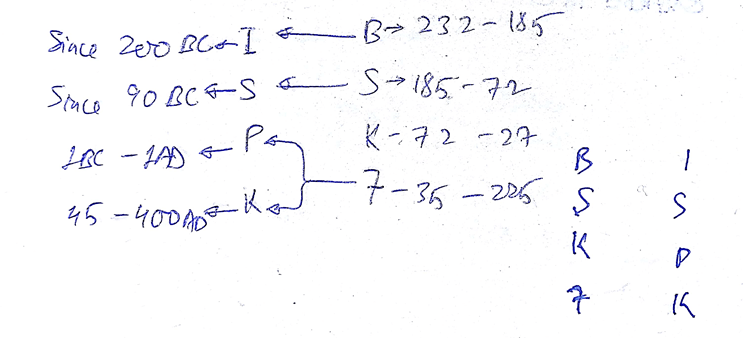 Since 200 BC ← I ← B → 232 - 185
Since 90 BC ← S ← S → 185 - 72
1BC - 1AD ← P K - 72 - 27
45 - 400AD ← K 7 - 35 - 225
B I
S S
K P
7 K